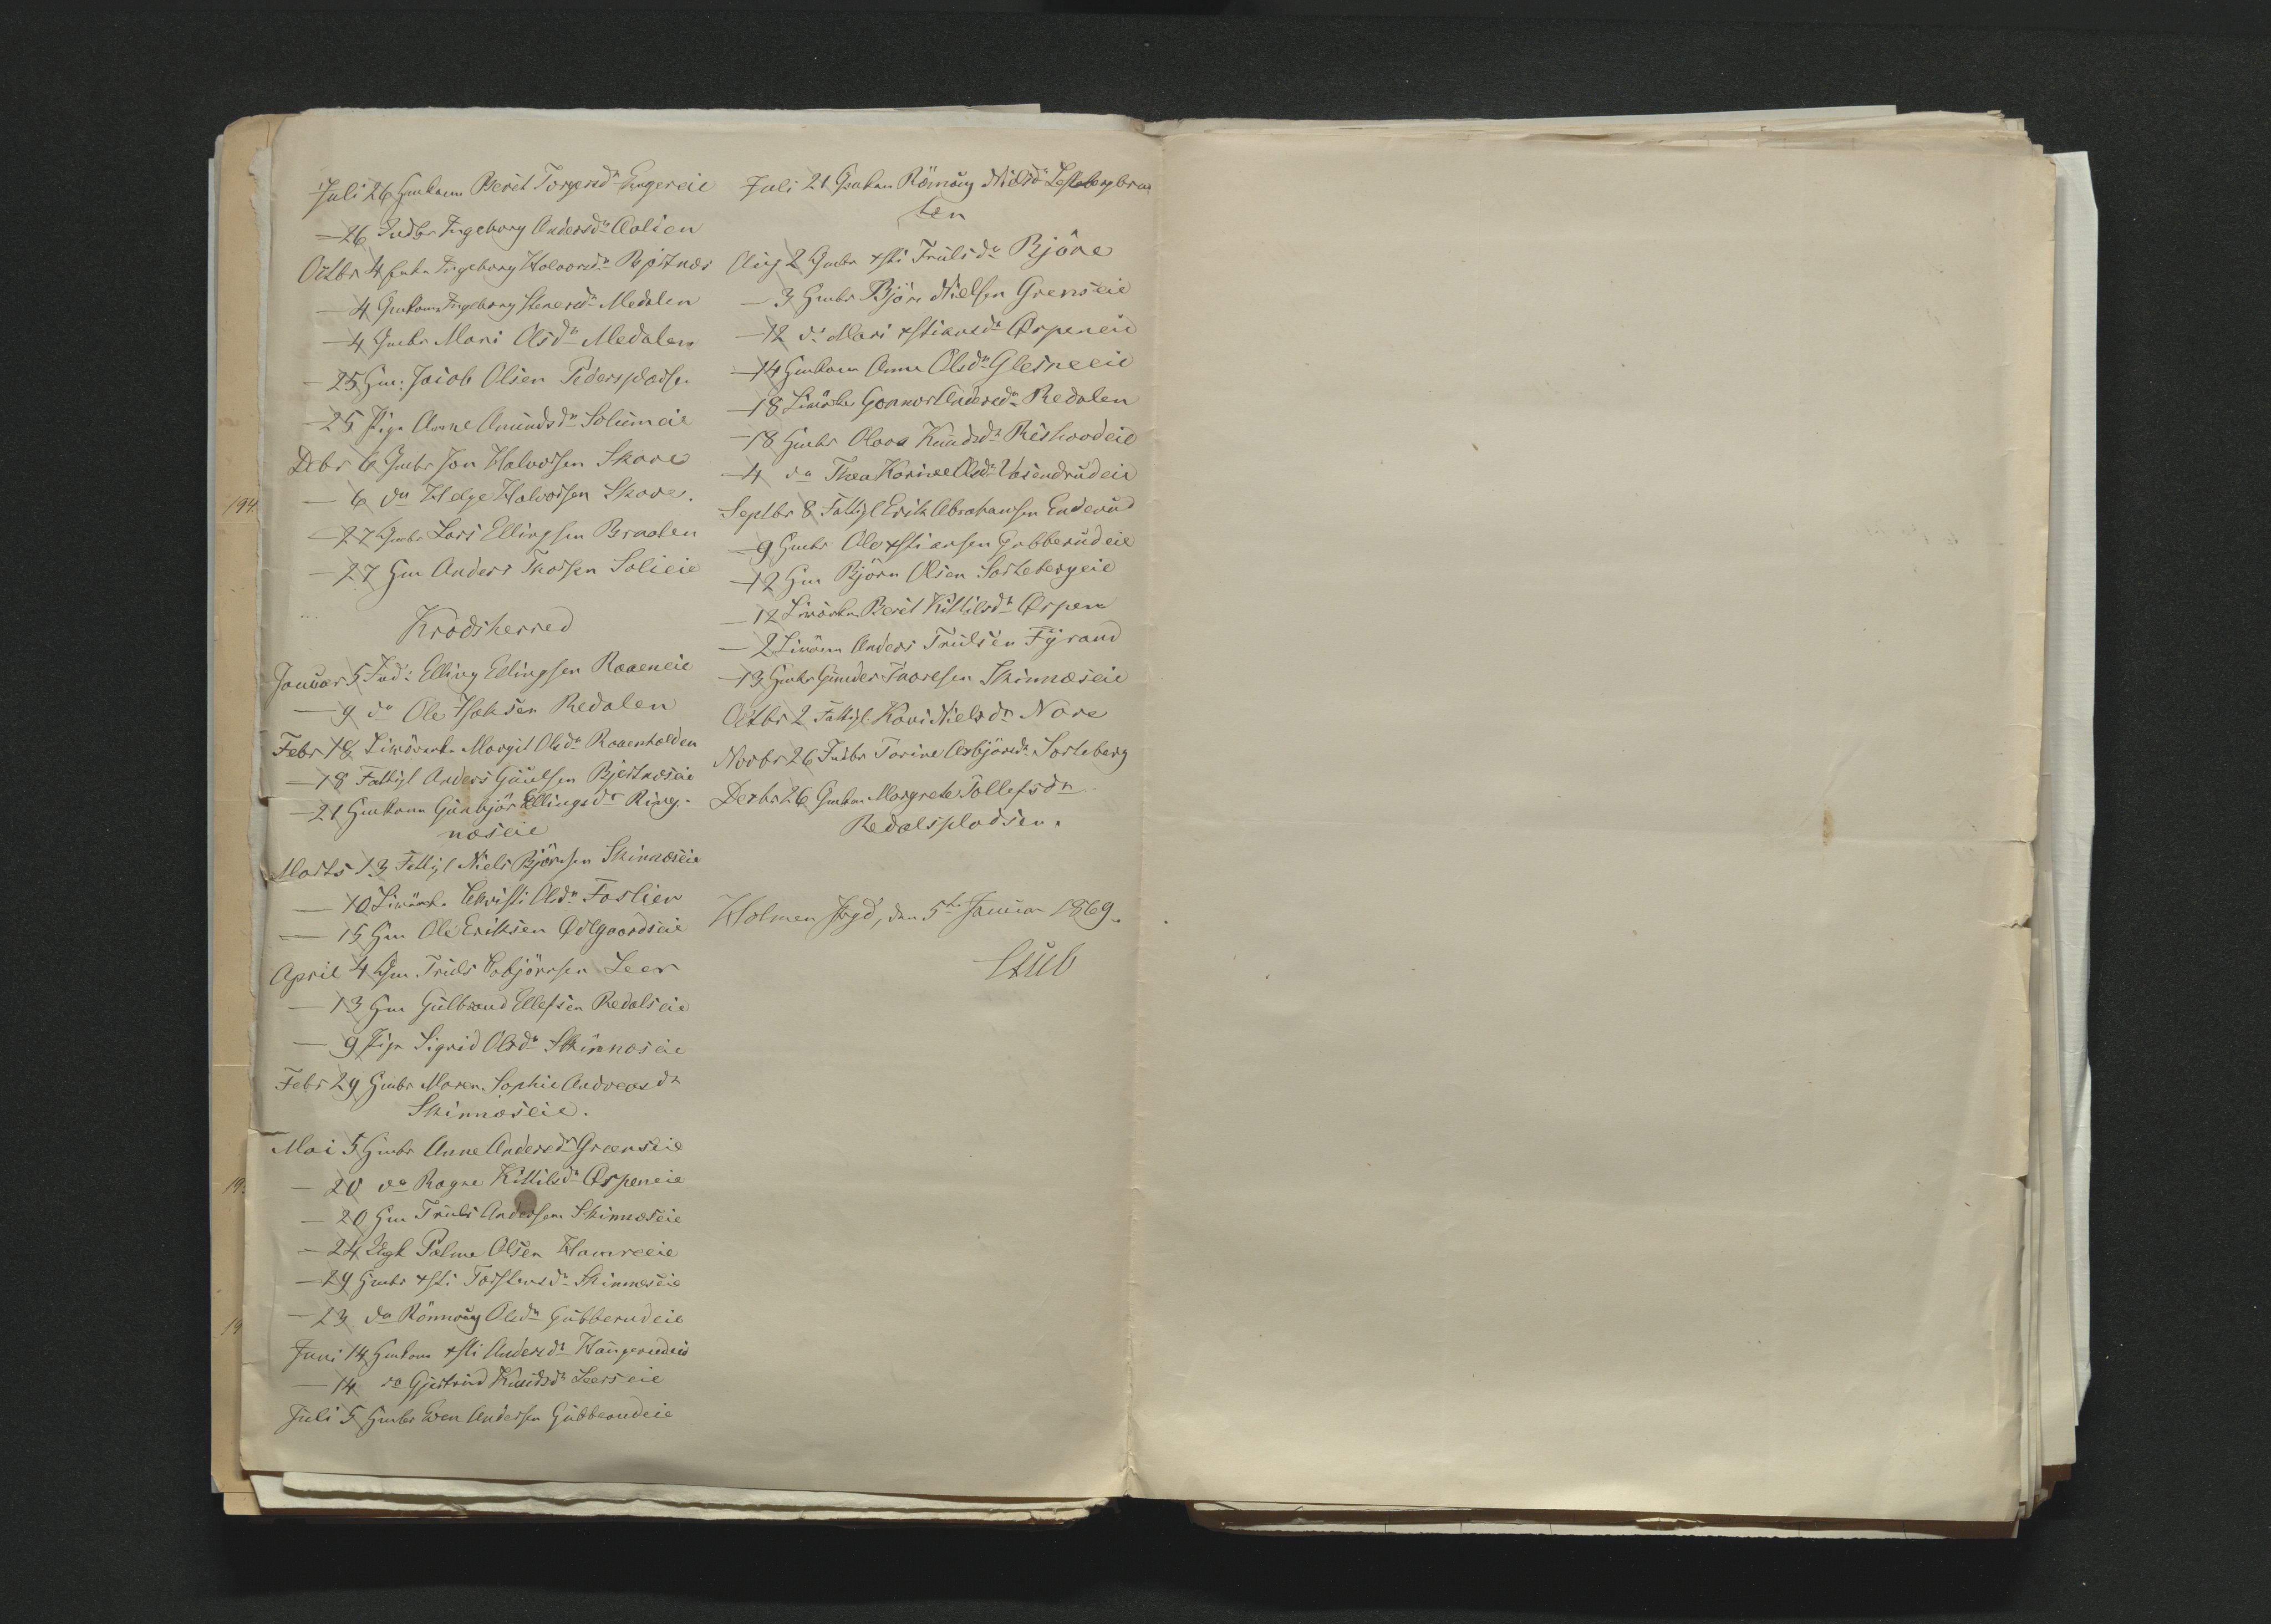 Juli 26 Gmkone Berit Torgersdr Engereie
— 26 Indbr Ingeborg Andersdr Aalien
Octbr 4 Gmkn Ingeborg Halvorsdr Bjertnes
— 4 Gmkone Ingeborg Stenersdr Medalen
— 4 Gmbr Mari Olsdr Medalen
— 25 Hm: Jacob Olsen Pedersplads
— 25 Pige Anne Amundsdr Solumeie
Debr 6 Gmbr Jon Halvorsen Skare
— 6 do Helge Halvorsen Skare.
— 27 Gmbr Lars Ellingsen Braaten
— 27 Hm Anders Thorsen Solieie
Krodsherred
Januar 5 Ind: Elling Ellingsen Raaeneie
— 9 do Ole Isaksen Redalen
Febr 18 Margit Olsdr Raaenhalden
— 18 Fattigl Anders Gulsen Bjertnæseie
— 21 Hmkone Gunbjør Ellingsdr Ring-
næseie
Marts 13 Fattigl Niels Bjørnsen Skinnæseie
— 10 Christi Olsdr Foslien
— 15 Hm Ole Eriksen Ødegaardseie
April 4 Gm Truls Torbjørnsen Leer
— 13 Hm Gulbrand Ellefsen Redalseie
— 9 Pige Sigrid Olsdr Skinnæseie
Febr 29 Hmbr Maren Sophie Andreasdr
Skinnæseie.
Mai 5 Hmbr Anne Andersdr Grænseie
— 20 do Ragne Kittilsdr Aspeneie
— 20 Hm Truls Andersen Skinnæseie
— 24 Ugk Palme Olsen Hamreeie
— 29 Hmbr Xsti Torstensdr Skinnæseie
— 23 do Rønnaug Olsdr Gubberudeie
Juni 14 Hmkone Xsti Andersdr Haugerudeie
— 14 do Gjertrud Knudsdr Leerseie
Juli 5 Hmbr Even Andersen Gubberudeie
Juli 21 Gmkone Rønnaug Nielsdr Lesteberg braa
ten
Aug 2 Gmbr Xsti Trulsdr Bjøre
— 3 Hmbr Bjørn Nielsen Grenseie
— 12 do Mari Xstiansdr Aspeneie
— 14 Hmkone Anne Olsdr Glesneeie
— 18 Gonnor Andersdr Redalen
— 18 Hmbr Olava Knudsdr Rishovdeie
— 4 do Thea Karine Olsdr Ulsendrudeie
Septbr 8 Fattigl Erik Abrahamsen Enderud
— 9 Hmbr Ole Xstiansen Gubberudeie
— 12 Hm Bjørn Olsen Sortebergeie
— 12 Berit Kittilsdr Aspen
— 2 Anders Trulsen Fyrand
— 13 Hmbr Gunder Thoresen Skinnæseie
Octbr 2 Fattigl Kari Nielsdr Nore
Novbr 26 Indbr Torine Asbjørsdr Sorteberg
Decbr 26 Gmkone Margrete Tollefsdr
Redalspladsen.
Holmen Sigd, den 5te Januar 1869.
Stub